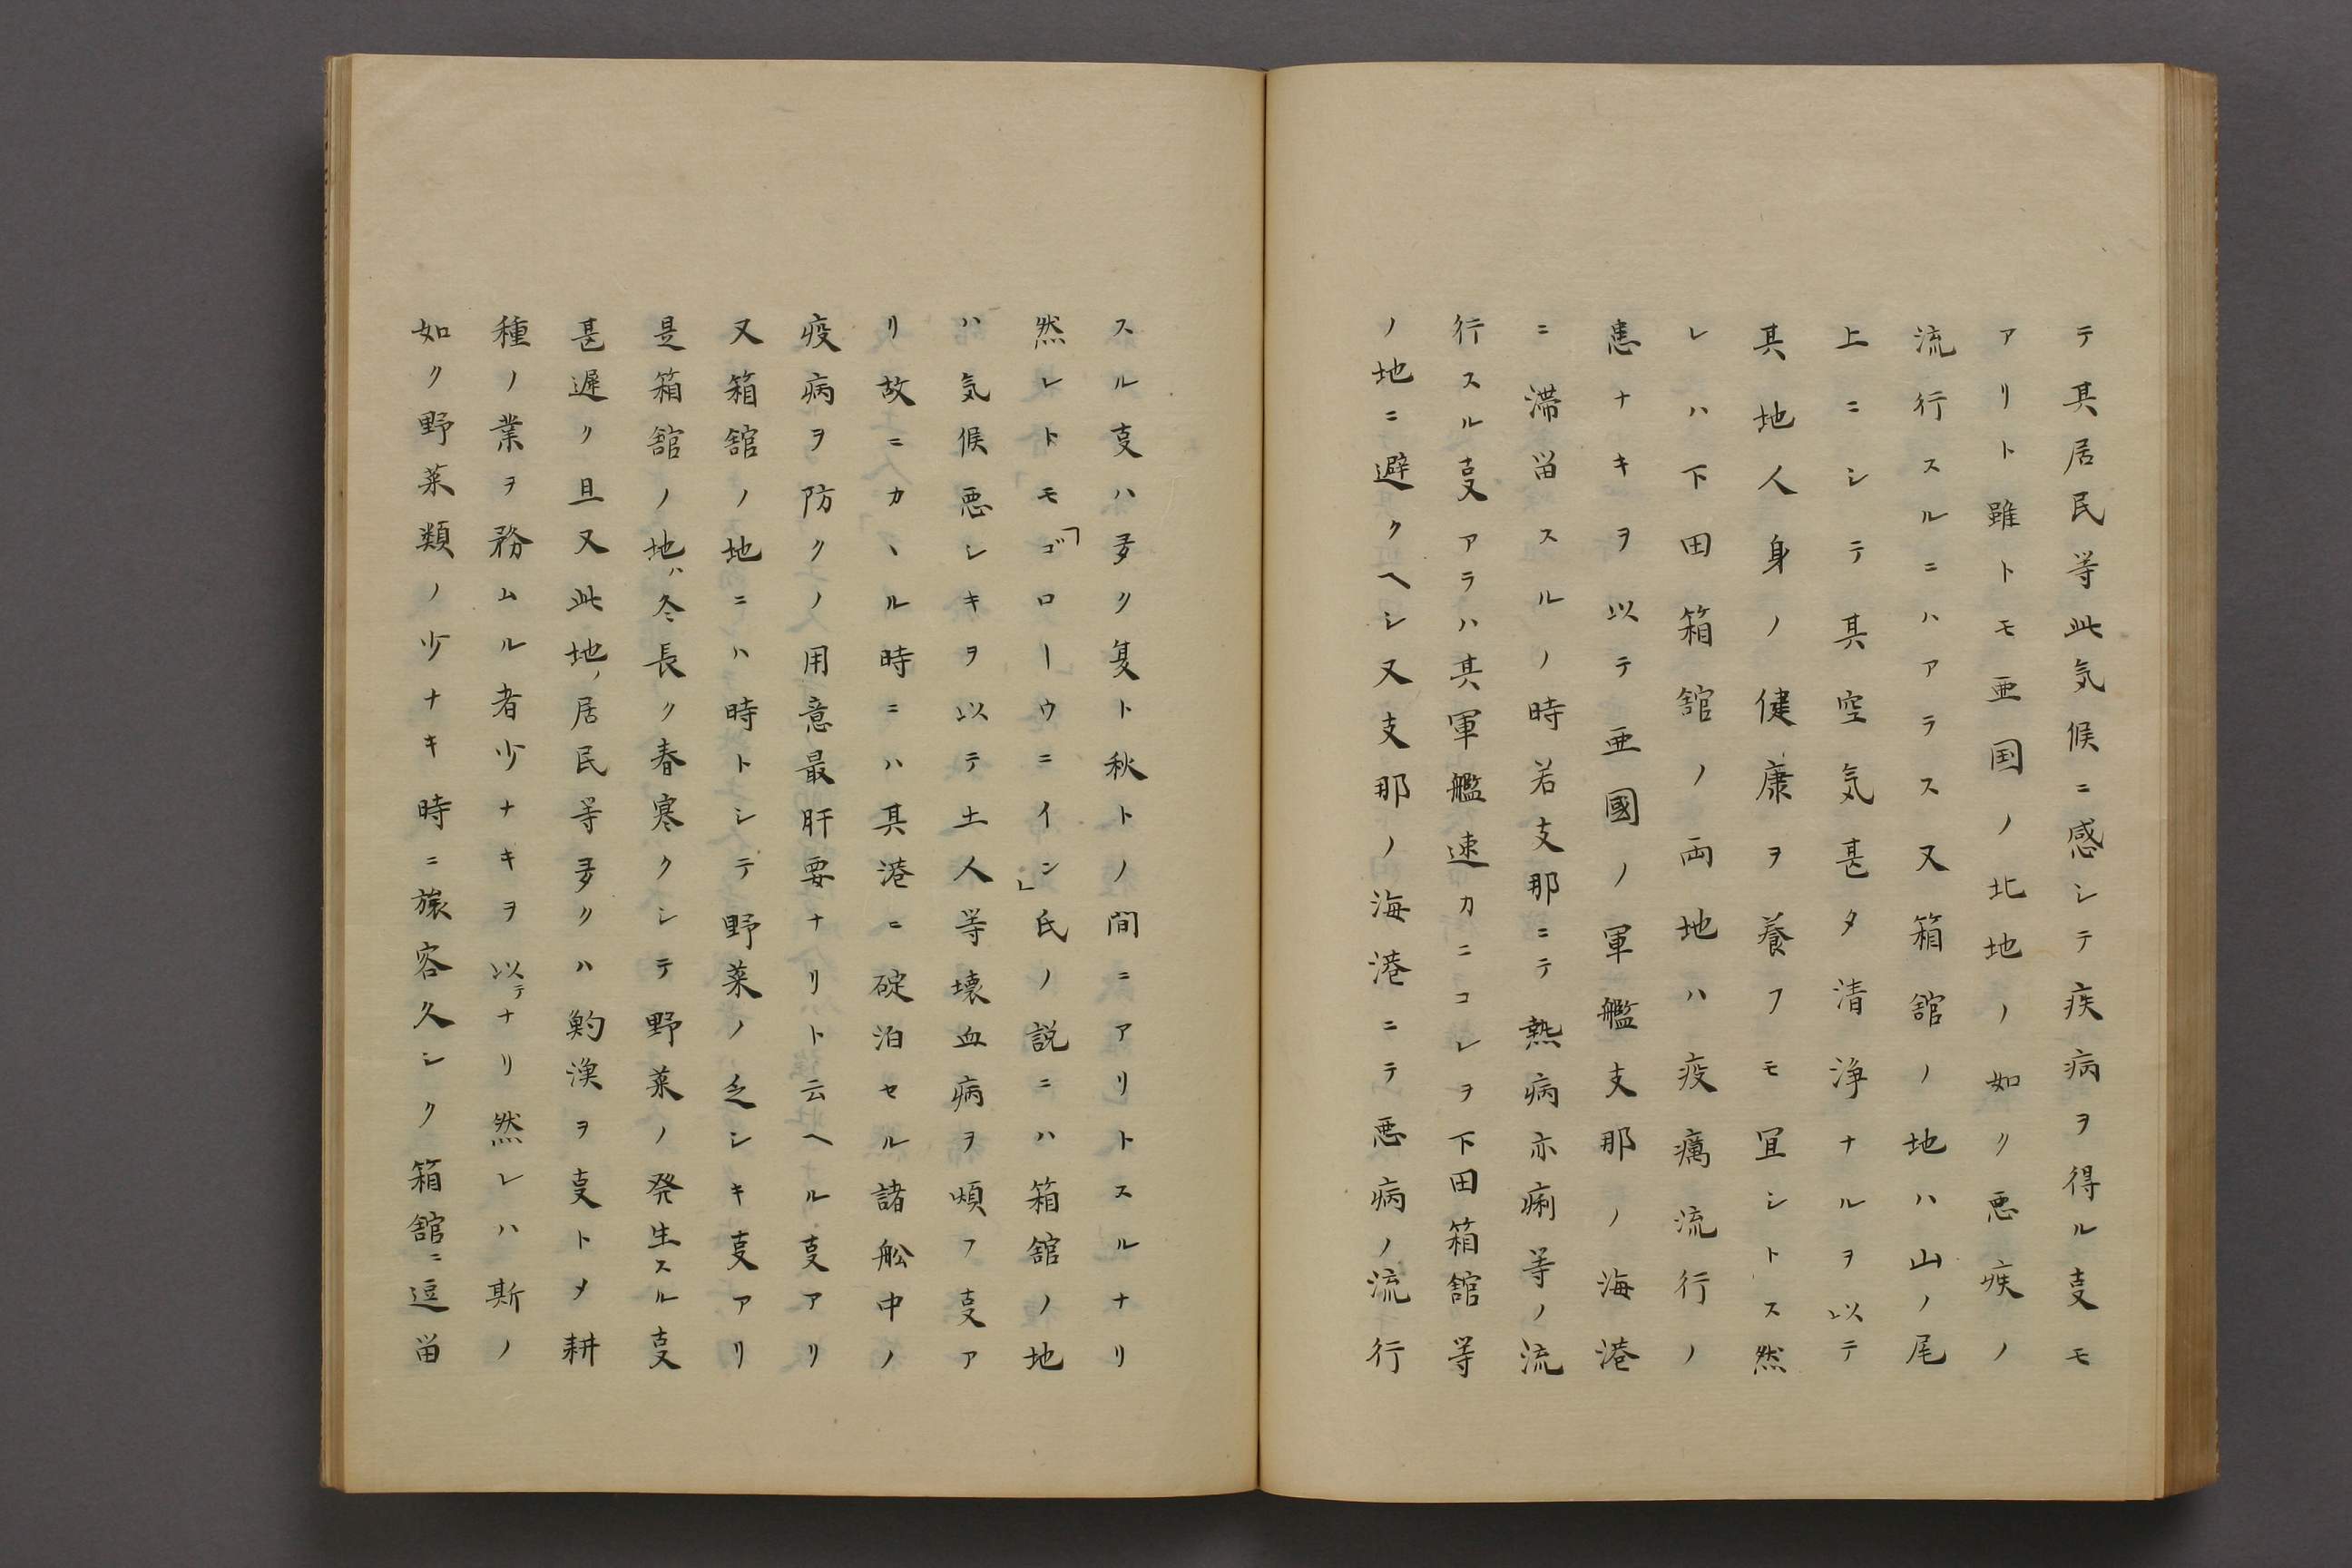 テ其居民等此気候ニ感シテ疾病ヲ得ル叓モ
アリト雖トモ亜国ノ北地ノ如ク悪疾ノ
流行スルニハアラス又箱舘ノ地ハ山ノ尾
上ニシテ其空気甚タ清浄ナルヲ以テ
其地人身ノ健康ヲ養フモ宜シトス然
レハ下田箱舘ノ両地ハ疫癘流行ノ
患ナキヲ以テ亜國ノ軍艦支那ノ海港
ニ滞畄スルノ時若支那ニテ熱病亦痢等ノ流
行スル叓アラハ其軍艦速カニコレヲ下田箱舘等
ノ地ニ避クヘシ又支那ノ海港ニテ悪病ノ流行
スル叓ハ多ク夏ト秋トノ間ニアリトスルナリ
然レトモ「ゴローウニイン」氏ノ説ニハ箱舘ノ地
ハ気候悪シキヲ以テ土人等壊血病ヲ煩フ叓ア
リ故ニカヽル時ニハ其港ニ碇泊セル諸舩中ノ
疫病ヲ防クノ用意最肝要ナリト云ヘル叓アリ
又箱舘ノ地ニハ時トシテ野菜ノ乏シキ叓アリ
是箱舘ノ地ハ冬長ク春寒クシテ野菜ノ発生スル叓
甚遲ク且又此地ノ居民等多クハ釣漁ヲ叓トメ耕
種ノ業ヲ務ムル者少ナキヲ以テナリ然レハ斯ノ
如ク野菜類ノ少ナキ時ニ旅客久シク箱舘ニ逗畄